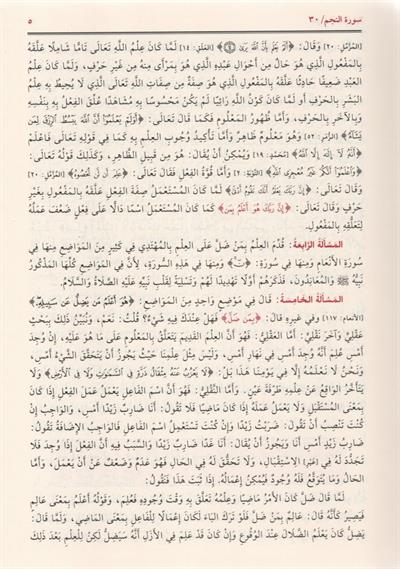 سورة النجم/ ٣٠ ٥
[المزمل: ٢٠] وَقَالَ: ﴿أَلَمْ يَعْلَم بِأَنَّ اللَّهَ يَرَىٰ﴾ [العلق: ١٤] لَمَّا كَانَ عِلْمُ اللَّهِ تَعَالَى تَامًّا شَامِلًا عَلَّقَهُ
بِالْمَفْعُولِ الَّذِي هُوَ حَالٌ مِنْ أَحْوَالِ عَبْدِهِ الَّذِي هُوَ بِمَرْأًى مِنْهُ مِنْ غَيْرِ حَرْفٍ، وَلَمَّا كَانَ عِلْمُ
الْعَبْدِ ضَعِيفًا حَادِثًا عَلَّقَهُ بِالْمَفْعُولِ الَّذِي هُوَ صِفَةٌ مِنْ صِفَاتِ اللَّهِ تَعَالَى الَّذِي لَا يُحِيطُ بِهِ عِلْمُ
الْبَشَرِ بِالْحَرْفِ أَو لَمَّا كَانَ كَوْنُ اللَّهِ رَائِيًا لَمْ يَكُنْ مَحْسُوسًا بِهِ مُشَاهَدًا عَلَّقَ الْفِعْلَ بِهِ بِنَفْسِهِ
وَبِالْآخَرِ بِالْحَرْفِ، وَأَمَّا ظُهُورُ الْمَعْلُومِ فَكَمَا قَالَ تَعَالَى: ﴿أَوَلَمْ يَعْلَمُوا أَنَّ اللَّهَ يَبْسُطُ الرِّزْقَ لِمَن
يَشَاءُ﴾ [الزمر: ٥٢] وَهُوَ مَعْلُومٌ ظَاهِرٌ وَأَمَّا تَأْكِيدُ وُجُوبِ الْعِلْمِ بِهِ كَمَا فِي قَوْلِهِ تَعَالَى فَاعْلَمْ
﴿أَنَّهُ لَا إِلَٰهَ إِلَّا اللَّهُ﴾ [محمد: ١٩] وَيُمْكِنُ أَنْ يُقَالَ: هُوَ مِنْ قَبِيلِ الظَّاهِرِ، وَكَذَلِكَ قَوْلُهُ تَعَالَى:
﴿وَاعْلَمُوا أَنَّكُمْ غَيْرُ مُعْجِزِي اللَّهِ﴾ [التوبة: ٢] وَأَمَّا قُوَّةُ الْفِعْلِ فَقَالَ تَعَالَى: ﴿عَلِمَ أَن لَّن تُحْصُوهُ﴾ [المزمل: ٢٠]
وَقَالَ تَعَالَى: ﴿إِنَّ رَبَّكَ يَعْلَمُ أَنَّكَ تَقُومُ أَدْنَىٰ﴾ لَمَّا كَانَ الْمُسْتَعْمَلُ صِفَةَ الْفِعْلِ عَلَّقَهُ بِالْمَفْعُولِ بِغَيْرِ
حَرْفٍ وَقَالَ تَعَالَى: ﴿إِنَّ رَبَّكَ هُوَ أَعْلَمُ بِمَن﴾ كَمَا كَانَ الْمُسْتَعْمَلُ اسْمًا دَالًّا عَلَى فِعْلٍ ضَعُفَ عَمَلُهُ
لِتَعَلُّقِهِ بِالْمَفْعُولِ.
الْمَسْأَلَةُ الرَّابِعَةُ: قُدِّمَ الْعِلْمُ بِمَنْ ضَلَّ عَلَى الْعِلْمِ بِالْمُهْتَدِي فِي كَثِيرٍ مِنَ الْمَوَاضِعِ مِنْهَا فِي
سُورَةِ الْأَنْعَامِ وَمِنْهَا فِي سُورَةِ: ﴿نَ﴾ وَمِنْهَا فِي هَذِهِ السُّورَةِ، لِأَنَّ فِي الْمَوَاضِعِ كُلِّهَا الْمَذْكُورُ
نَبِيُّهُ ﷺ وَالْمُعَانِدُونَ، فَذَكَرَهُمْ أَوَّلًا تَهْدِيدًا لَهُمْ وَتَسْلِيَةً لِقَلْبِ نَبِيِّهِ عَلَيْهِ الصَّلَاةُ وَالسَّلَامُ.
الْمَسْأَلَةُ الْخَامِسَةُ: قَالَ فِي مَوْضِعٍ وَاحِدٍ مِنَ الْمَوَاضِعِ: ﴿هُوَ أَعْلَمُ مَن يَضِلُّ عَن سَبِيلِهِ﴾
[الأنعام: ١١٧] وَفِي غَيْرِهِ قَالَ: ﴿بِمَن ضَلَّ﴾ فَهَلْ عِنْدَكَ فِيهِ شَيْءٌ؟ قُلْتُ: نَعَمْ، وَنُبَيِّنُ ذَلِكَ بِبَحْثٍ
عَقْلِيٍّ وَآخَرَ نَقْلِيٍّ: أَمَّا الْعَقْلِيُّ: فَهُوَ أَنَّ الْعِلْمَ الْقَدِيمَ يَتَعَلَّقُ بِالْمَعْلُومِ عَلَى مَا هُوَ عَلَيْهِ، إِنْ وُجِدَ
أَمْسِ عُلِمَ أَنَّهُ وُجِدَ أَمْسِ فِي نَهَارِ أَمْسِ، وَلَيْسَ مِثْلَ عِلْمِنَا حَيْثُ يَجُوزُ أَنْ يَتَحَقَّقَ الشَّيْءُ أَمْسِ،
وَنَحْنُ لَا نَعْلَمُهُ إِلَّا فِي يَوْمِنَا هَذَا بَلْ: ﴿لَا يَعْزُبُ عَنْهُ مِثْقَالُ ذَرَّةٍ فِي السَّمَاوَاتِ وَلَا فِي الْأَرْضِ﴾ وَلَا
يَتَأَخَّرُ الْوَاقِعُ عَنْ عِلْمِهِ طَرْفَةَ عَيْنٍ. وَأَمَّا النَّقْلِيُّ: فَهُوَ أَنَّ اسْمَ الْفَاعِلِ يَعْمَلُ عَمَلَ الْفِعْلِ إِذَا كَانَ
بِمَعْنَى الْمُسْتَقْبَلِ وَلَا يَعْمَلُ عَمَلَهُ إِذَا كَانَ مَاضِيًا فَلَا تَقُولُ: أَنَا ضَارِبٌ زَيْدًا أَمْسِ، وَالْوَاجِبُ إِنْ
كُنْتَ تَنْصِبُ أَنْ تَقُولَ: ضَرَبْتُ زَيْدًا وَإِنْ كُنْتَ تَسْتَعْمِلُ اسْمَ الْفَاعِلِ فَالْوَاجِبُ الْإِضَافَةُ تَقُولُ:
ضَارِبُ زَيْدٍ أَمْسِ أَنَا وَيَجُوزُ أَنْ يُقَالَ: أَنَا غَدًا ضَارِبٌ زَيْدًا وَالسَّبَبُ فِيهِ أَنَّ الْفِعْلَ إِذَا وُجِدَ فَلَا
تَجَدُّدَ لَهُ فِي [غير] الِاسْتِقْبَالِ، وَلَا تَحَقُّقَ لَهُ فِي الْحَالِ فَهُوَ عَدَمٌ وَضَعُفَ عَنْ أَنْ يَعْمَلَ، وَأَمَّا
الْحَالُ وَمَا يُتَوَقَّعُ فَلَهُ وُجُودٌ فَيُمْكِنُ إِعْمَالُهُ. إِذَا ثَبَتَ هَذَا فَنَقُولُ:
لَمَّا قَالَ ضَلَّ كَانَ الْأَمْرُ مَاضِيًا وَعِلْمُهُ تَعَلَّقَ بِهِ وَقْتَ وُجُودِهِ فَعُلِمَ، وَقَوْلُهُ أَعْلَمُ بِمَعْنَى عَالِمٍ
فَيَصِيرُ كَأَنَّهُ قَالَ: عَالِمٌ بِمَنْ ضَلَّ فَلَوْ تَرَكَ الْبَاءَ لَكَانَ إِعْمَالًا لِلْفَاعِلِ بِمَعْنَى الْمَاضِي، وَلَمَّا قَالَ:
يَضِلُّ كَانَ يَعْلَمُ الضَّلَالَ عِنْدَ الْوُقُوعِ وَإِنْ كَانَ قَدْ عَلِمَ فِي الْأَزَلِ أَنَّهُ سَيَضِلُّ لَكِنْ لِلْعِلْمِ بَعْدَ ذَلِكَ